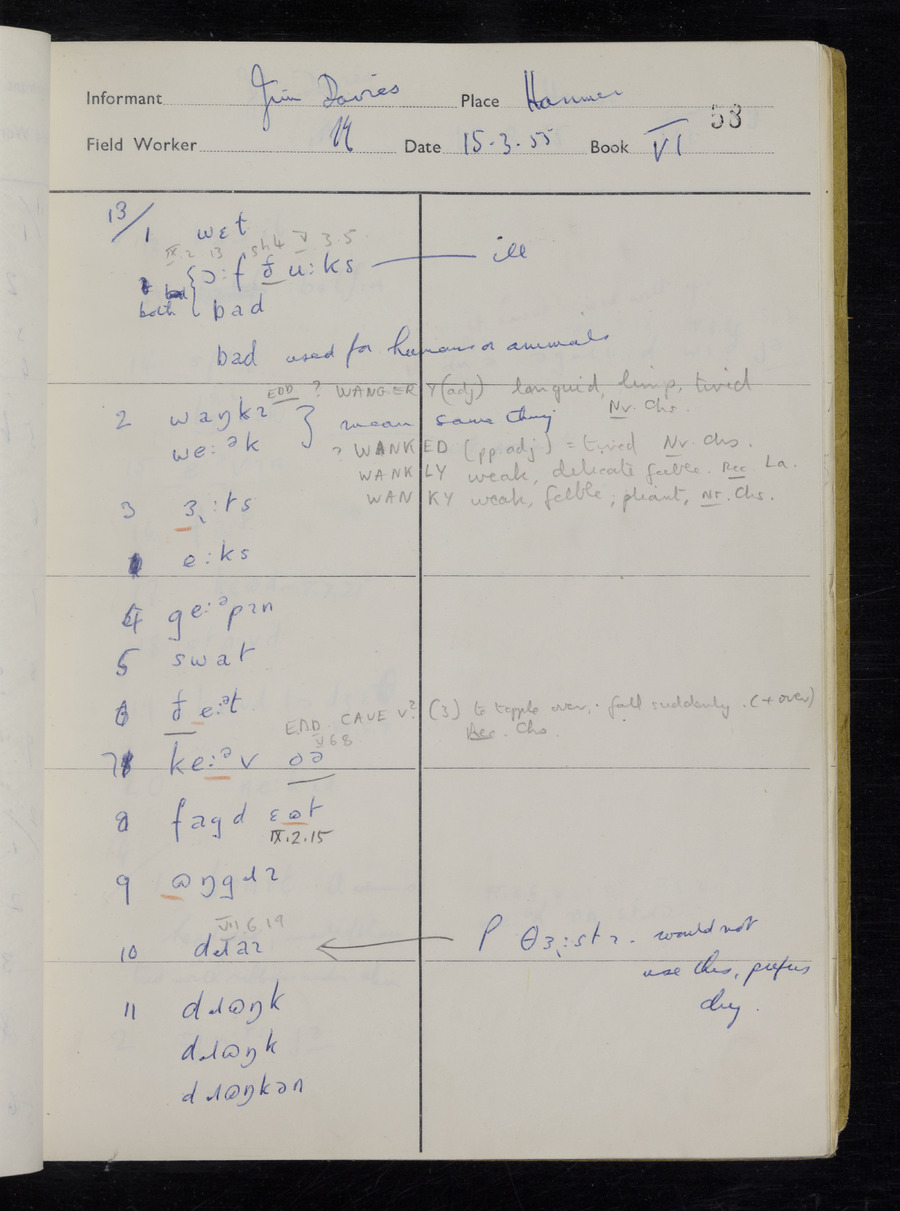 Informant Jim Davies Place Hanmer
53
Field Worker Date 15.3.55 Book VI
13/
1 wɛt
IX 2 13 sh4 V 3.5
ɔ:f ðu:ks ill
both bad
bad used for humans or animals
EDD ? WANGERY (adj) languid, limp, tired
2 waŋkɹ mean same thing Nr. Chs.
we:ək
? WANKED (pp. adj) = tired Nr. Chs.
WANKLY weak, delicate feeble. Rec La.
WANKY weak, feeble; pliant, Nr. Chs.
3 ɜ:ts
e:ks
4 ge:əpɪn
5 swat
6 fe:ət
EDD. CAVE v² (3) to topple over, fall suddenly. (+ over)
V 6 8 Rec. Chs.
7 ke:əv oə
8 fagd ɛɷt
IX.2.15
9 ɷŋgɹɪ
VII 6 19
10 dɹaɪ P θɜ:stɪ. would not
use this, prefers
dry.
11 dɹɷŋk
dɹɷŋk
dɹɷŋkən